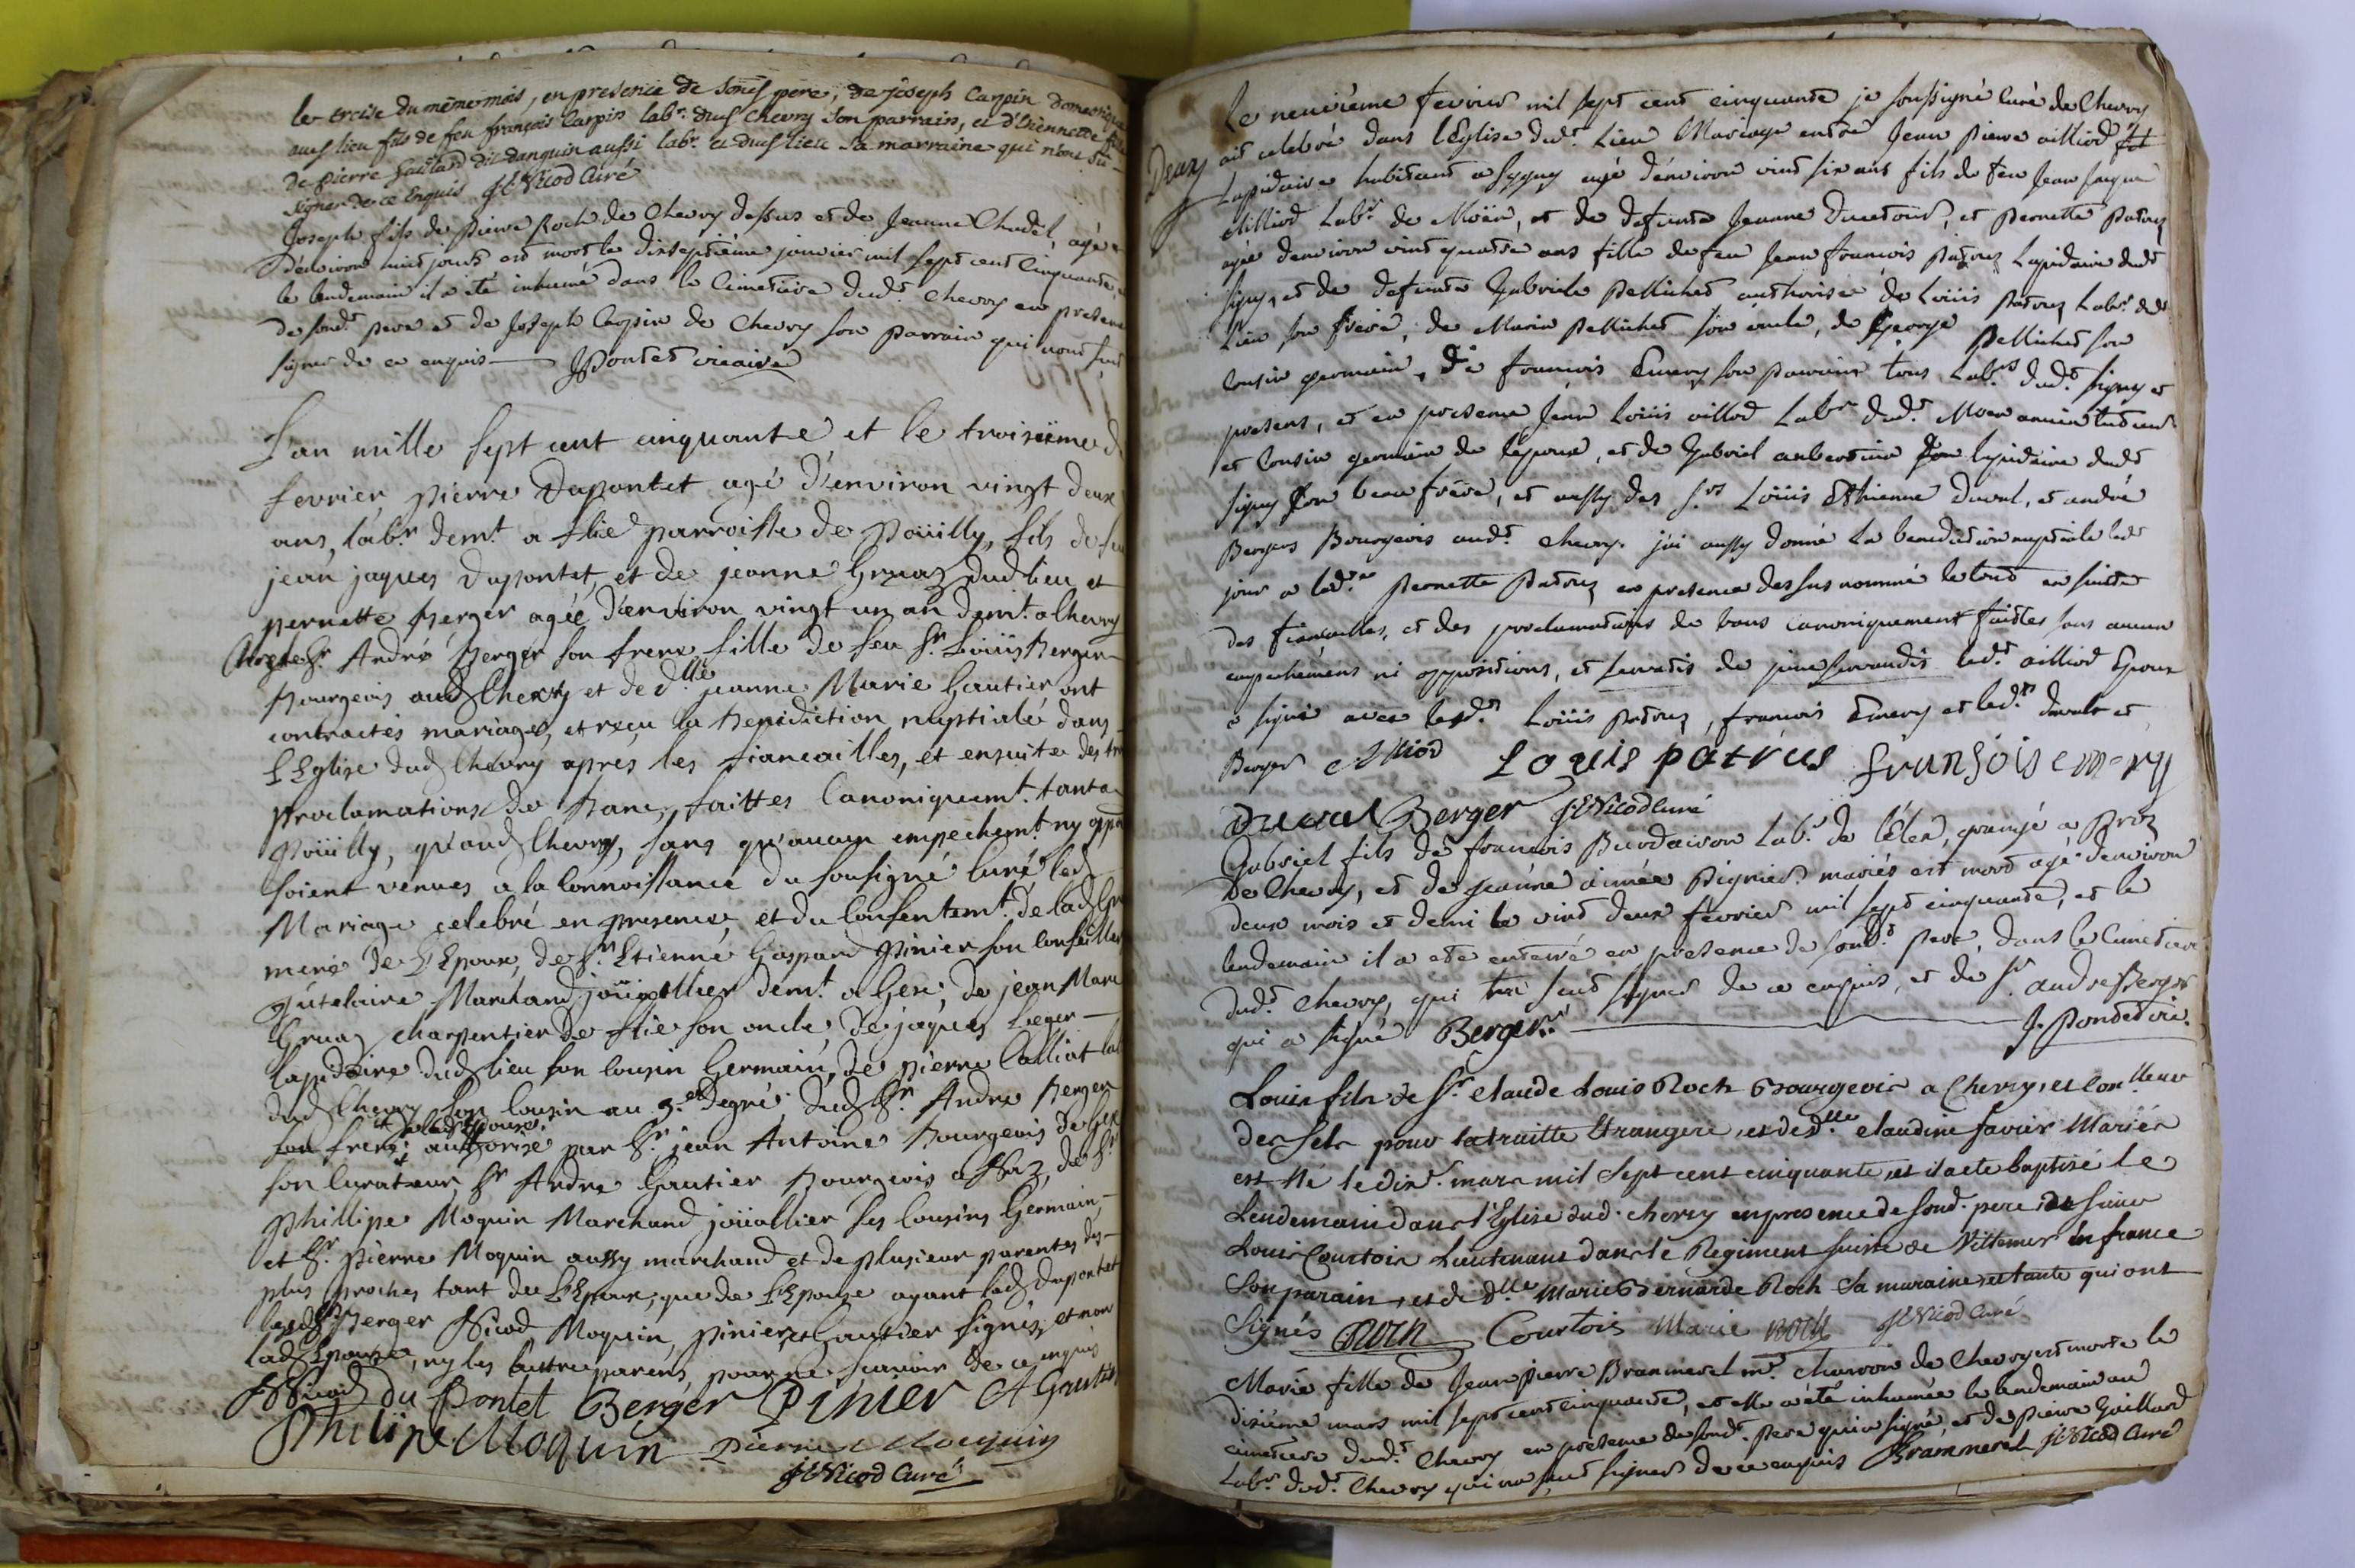 le treise du même mois, en presence de sond. pere, de joseph Carpin domestique
aud. lieu fils de feu françois Carpin lab.r dud. Chevry son parrain, et d'Etiennette fille
de pierre Gaillard dit danguin aussi lab.r dud. lieu sa marraine qui n'ont su
signer de ce Enquis JE Nicod Curé
Joseph fils de Pierre Roch de Chevry dessus et de Jeanne Chudet, agé
d'environ huit jours est mort le dixseptième janvier mil sept cent cinquante,
le lendemain il a été inhumé dans le Cimetiere dud.t Chevry en presence
de sond.t pere et de Joseph Carpin de Chevry son parrain qui n'ont sçut
signer de ce enquis JPontet vicaire
L'an mille sept cent cinquante et le troisiéme de
fevrier, pierre Dupontet agé d'environ vingt deux
ans, lab.r dem.t a flie parroisse de Poüilly, fils de feu
jean jaques Dupontet, et de jeanne Gruaz dud lieu et
pernette Berger agée d'environ vingt un an dem.t a Chevry
Chez le Sr. André Berger son frere fille de feu Sr. Loüis Berger
Bourgeois aud Chevry et de d.lle jeanne Marie Gautier, ont
contractés mariage, et reçu la Benediction nuptiale dans
L'Eglise dud Chevry aprés les fiancailles, et ensuite des trois
proclamations de Banc, faittes Canoniquemt. tant a
Poüilly, qu'aud Chevry, sans qu'aucun empechemt. ny oppo
soient venues a la Connoissance du sousigné Curé, led
Mariage celebré en presence, et du Consentemt. de lad Gruaz
mere de L'Epoux, de Sr. Etienne Gaspard Pinier son Conseiller
tutelaire Marchand joüallier dem.t a Gex, de jean Marc
Gruaz charpentier de flie son oncle, de jaques Leger
lapidaire dud lieu son Cousin Germain, de pierre Calliat lab
dud Chevry son Cousin au 3.e degré; dud Sr. Andre Berger
de lad Epouse
son frere, authorise par Sr. jean Antoine Bourgeois de Gex
son Curateur, Sr Andre Gautier Bourgeois a Naz, de Sr
Phillipe Moquin Marchand joüallier ses Cousins Germain,
et Sr. pierre Moquin aussy marchand et de plusieur parentes des
plus proches tant de L'Epoux, que de L'Epouse ayant led Dupontet
lesd Srs Berger Nicod, Moquin, Pinier, et Gautier signés, et non
lad Epouse, ny les autre parens, pour ne sçavoir de ce enquis
Nicod du Pontet Berger Pinier A Gautier
Philipe Moquin Pierre Moquin
JE Nicod Curé
Le neuviéme fevrier mil sept cent cinquante je soussigné Curé de Chevry
Deux ait celebré dans l'Eglise dud.t Lieu Mariage entre Jean Pierre ailliod
Lapidaire habitant a Sygny agé d'environ vint six ans fils de feu Jean Jaque
Ailliod Lab.r de Moën, et de defunte Jeanne Ducetour, et Pernette Patruz
agée d'environ vint quatre ans fille de feu Jean francois Patruz Lapidaire dud.t
signy, et de defunte Gabriele Pellichet authorisée de Loüis Patruz Lab.r dud.
Lieu son frere, de Marin Pellichet son oncle, de George Pellichet son
Cousin germain, de francois Emery son parrain tous Lab.rs dud.t signy et
presens, et en presence Jean Loüis aillod Lab.r dud.t Moen
et Cousin germain de l'époux, et de Gabriel aubertin lapidaire dud.t
signy son beau frere, et aussy des S.rs Loüis Etienne Duval, et andré
Bergers Bourgeois aud.t Chevry. j'ai aussy donné la benediction nuptiale led.t
jour a led.te Pernette Patruz en presence des susnommé le tout en suitte
des fiancailles, et des proclamations de bans canoniquement faittes sans aucun
empechemens ni oppositions, et servatis de jure servandis led.t ailliod Epoux
a signé avec lesd.ts Loüis patruz, francois Emery et led.ts duvale et
Berger Alliod Louis patrus franſois emery
Duval Berger JE Nicod Curé
Gabriel fils de francois Burdairon Lab.r de Lélex, grangé a Proz
De Chevry, et de Jeanne aimée Pignier mariés est mort agé d'environ
deux mois et demi le vint deux fevrier mil sept cinquante, et le
lendemain il a été enterré en presence de sond.t Pere, dans le Cimetiere
dud.t Chevry, qui n'a sçut signer de ce enquis, et de Sr andre Berger
qui a signé Berger J. Pontet vic.
Louis fils de Sr. Claude Louis Roch Bourgeois a Chevry, et Con.lleur
des Sels pour la traitte Etrangere, et de d.lle Claudine favier Mariés
est Né le dix.e mars mil Sept cent cinquante, et il a ete baptisé le
Lendemain dans l'Eglise dud. chevry en presence de sond. pere, de sieur
Louis Courtois Lieutenant dans le Regiment suisse de Vittemer en france
Son parain, et de d.lle Marie Bernarde Roch Sa maraine, et tante qui ont
Signés Roch Courtois Marie Roch JE Nicod Curé
Marie fille de Jean Pierre Brammerel m.e charron de Chevry est morte le
dixiéme mars mil sept cent cinquante, et elle a été inhumée le lendemain au
cimetiere dud.t Chevry en presence de sond.t Pere qui a signé, et de Pierre Gaillard
Lab.r dud.t Chevry qui n'a sçut signer de ce enquis Brammerel JE Nicod Curé